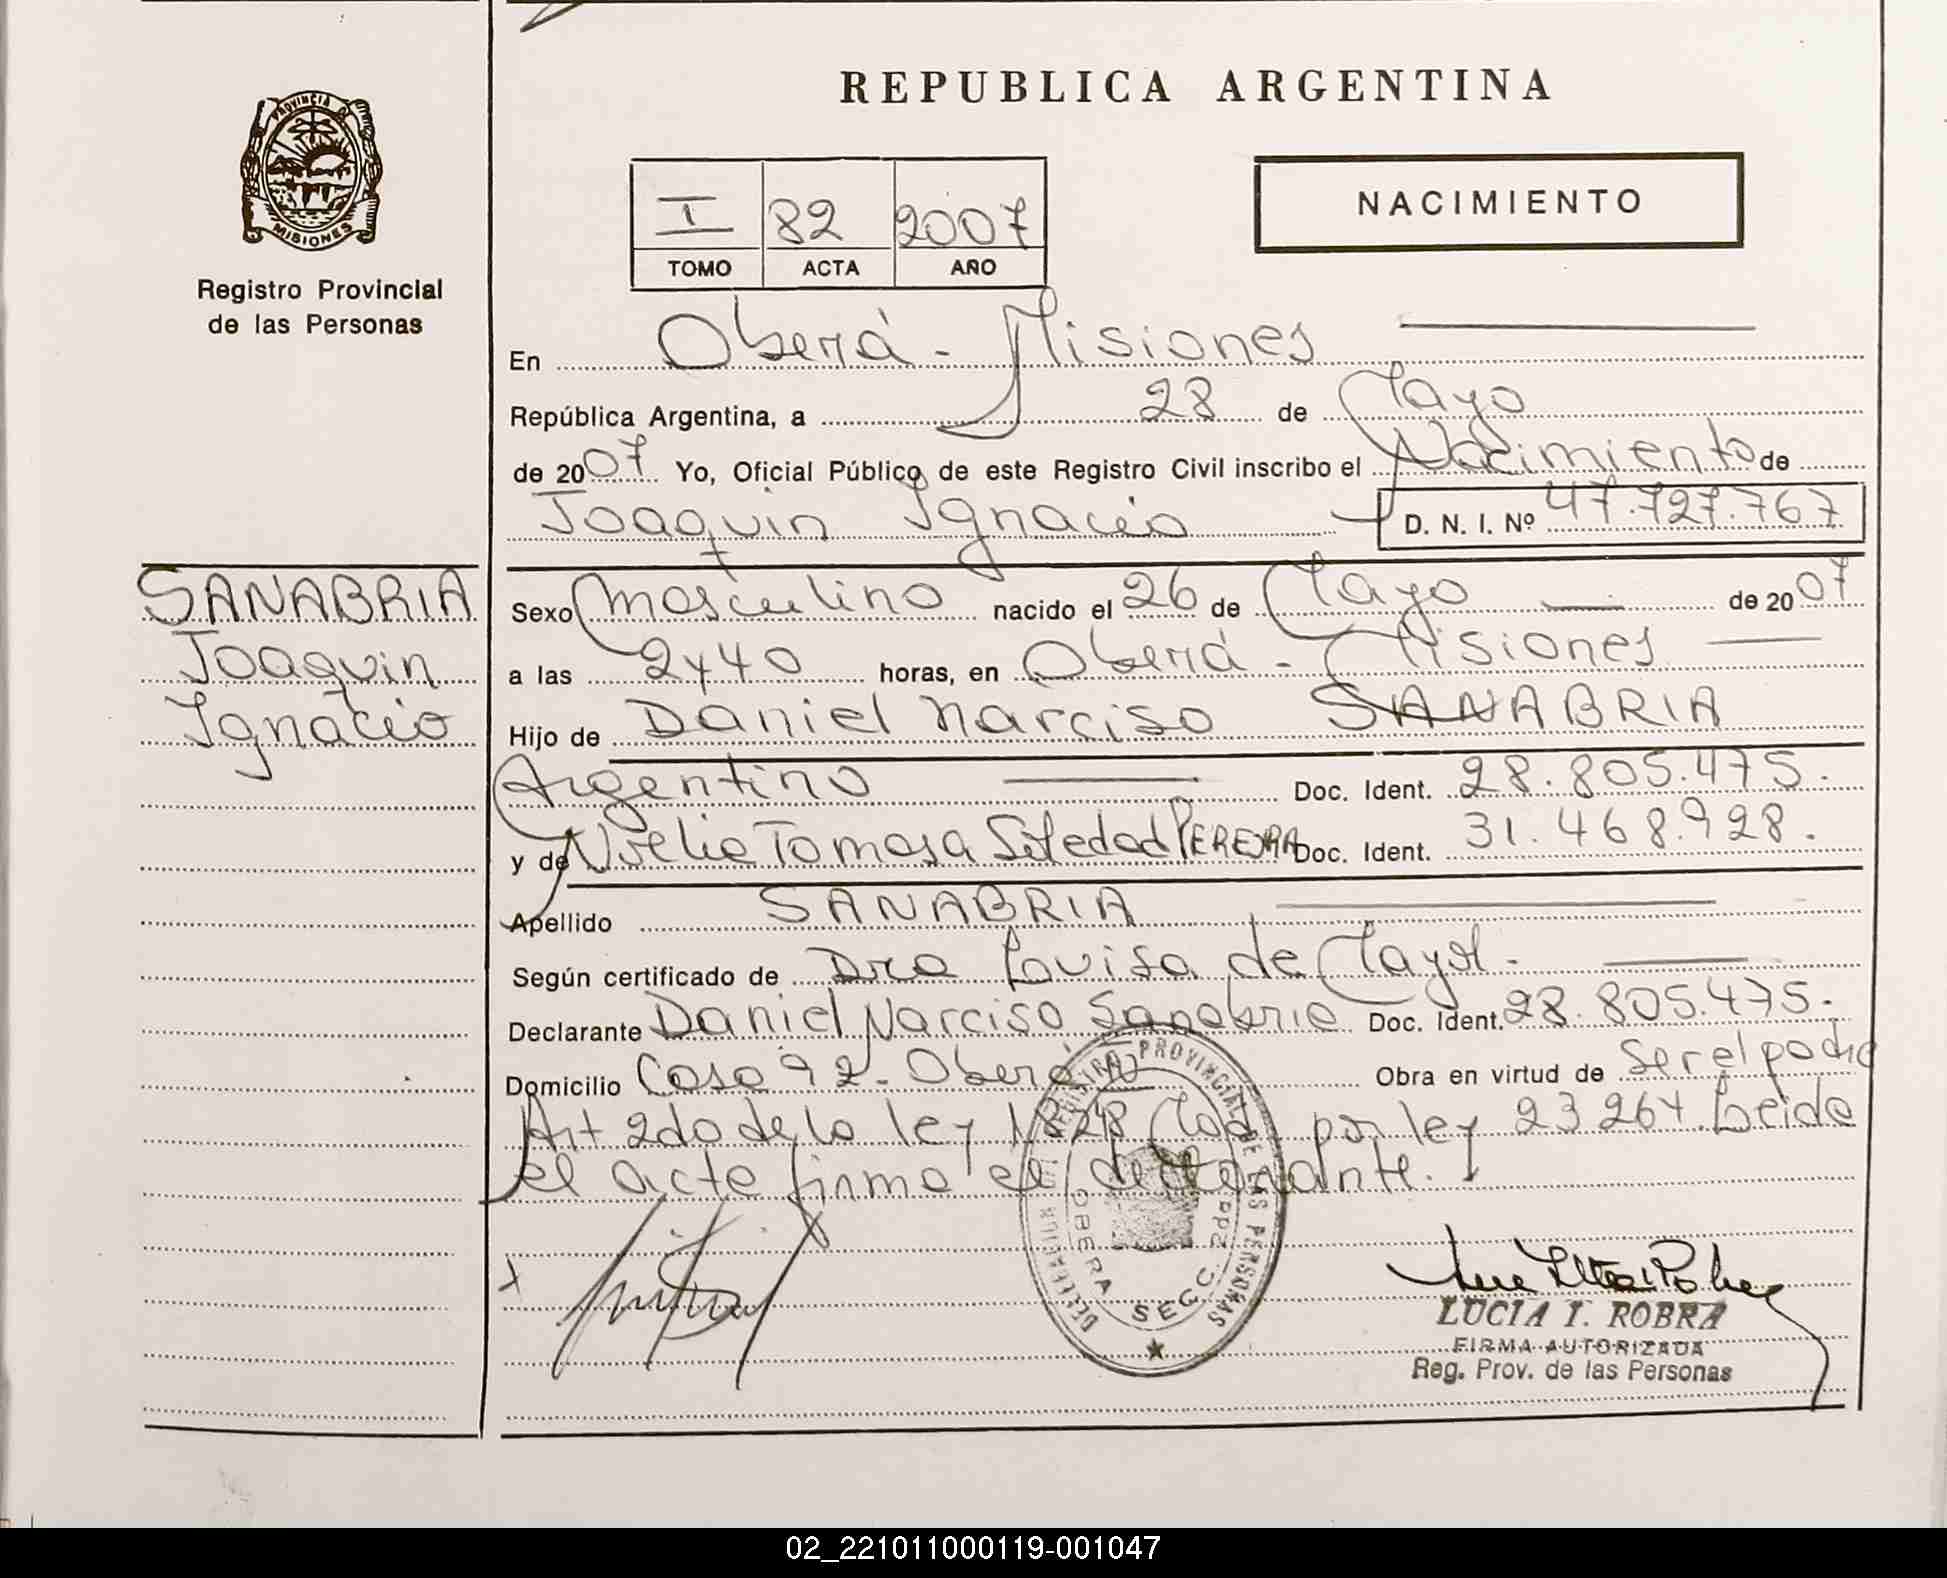 REPUBLICA ARGENTINA
PROVINCIA DE MISIONES
Registro Provincial
de las Personas
I 82 2007
TOMO ACTA AÑO
NACIMIENTO
En Oberá - Misiones
República Argentina, a 28 de Mayo
de 2007 Yo, Oficial Público de este Registro Civil inscribo el Nacimiento de
Joaquin Ignacio D. N. I. Nº 47.727.767
SANABRIA
Joaquin
Ignacio
Sexo masculino nacido el 26 de Mayo de 2007
a las 2y40 horas, en Oberá - Misiones
Hijo de Daniel Narciso SANABRIA
Argentino Doc. Ident. 28.805.475.
y de Noelia Tomasa Soledad PEREYRA Doc. Ident. 31.468.928.
Apellido SANABRIA
Según certificado de Dra Louisa de
Declarante Daniel Narciso Sanabria Doc. Ident. 28.805.475.
Domicilio Casa 92 - Oberá Obra en virtud de ser el padre
Art 2do de la ley 18248 Mod por ley 23264. Leida
el acta firma el declarante.
DELEGACION REGISTRO PROVINCIAL DE LAS PERSONAS
OBERA SECC. 2da
LUCIA I. ROBRA
FIRMA AUTORIZADA
Reg. Prov. de las Personas
02_221011000119-001047